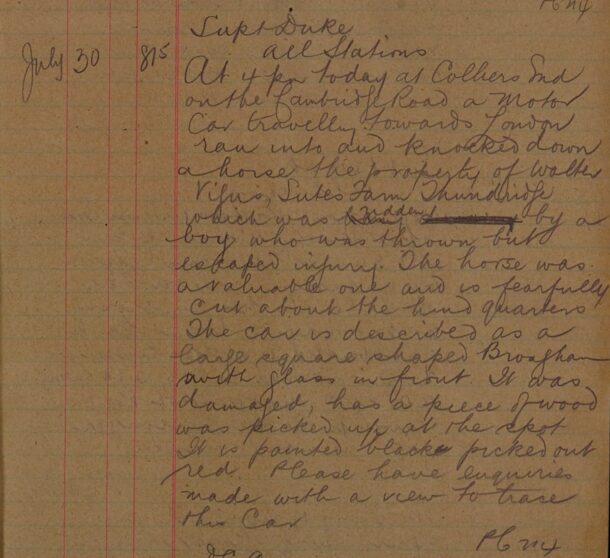 Supt Duke
All Stations
July 30 815 At 4 pm today at Colliers End
on the Cambridge Road a Motor
Car travelling towards London
ran into and knocked down
a horse the property of Walter
Vigus, Sutes Farm Thundridge
which was ridden by a
boy who was thrown but
escaped injury. The horse was
a valuable one and is fearfully
cut about the hind quarters
The car is described as a
large square shaped Brougham
with glass in front. It was
damaged, has a piece of wood
was picked up at the spot
It is painted black picked out
red. Please have enquiries
made with a view to trace
this Car